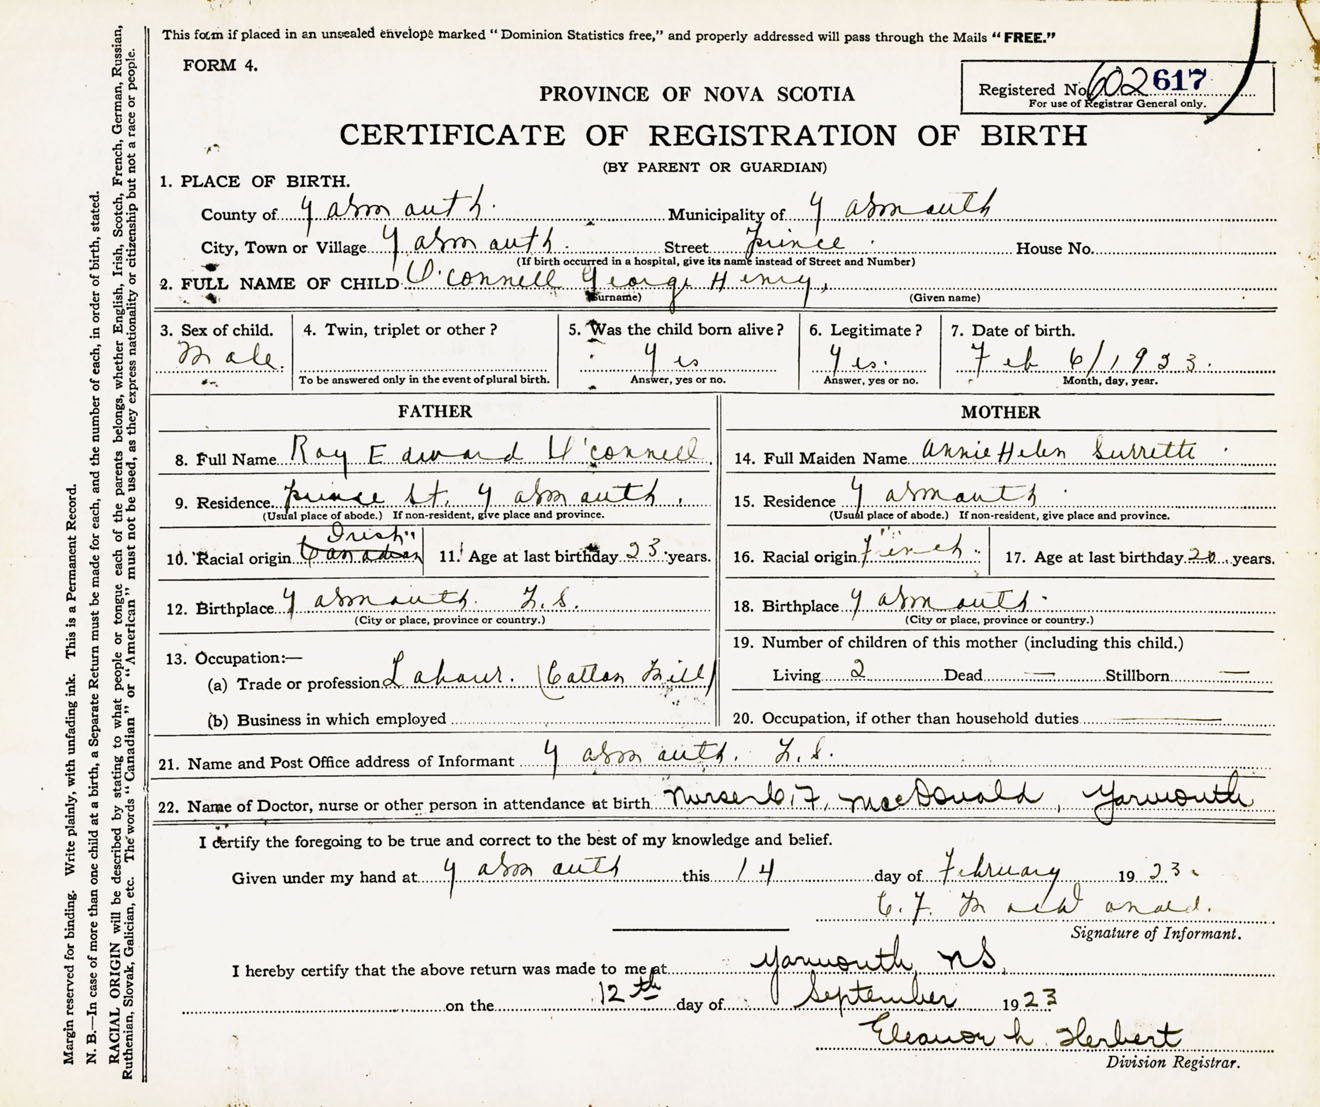 This form if placed in an unsealed envelope marked "Dominion Statistics free," and properly addressed will pass through the Mails "FREE."
FORM 4.
Registered No. 602617
For use of Registrar General only.
PROVINCE OF NOVA SCOTIA
CERTIFICATE OF REGISTRATION OF BIRTH
(BY PARENT OR GUARDIAN)
1. PLACE OF BIRTH.
County of Yarmouth. Municipality of Yarmouth
City, Town or Village Yarmouth. Street Prince. House No.
(If birth occurred in a hospital, give its name instead of Street and Number)
2. FULL NAME OF CHILD O'Connell George Henry,
(Surname) (Given name)
3. Sex of child. 4. Twin, triplet or other? 5. Was the child born alive? 6. Legitimate? 7. Date of birth.
Male. Yes Yes. Feb 6/1923.
To be answered only in the event of plural birth. Answer, yes or no. Answer, yes or no. Month, day, year.
FATHER MOTHER
8. Full Name Roy Edward O'Connell 14. Full Maiden Name Annie Helen Surrette
9. Residence Prince St. Yarmouth. 15. Residence Yarmouth.
(Usual place of abode.) If non-resident, give place and province. (Usual place of abode.) If non-resident, give place and province.
Irish
10. Racial origin Canadian 11. Age at last birthday 23 years. 16. Racial origin French. 17. Age at last birthday 20 years.
12. Birthplace Yarmouth. N.S. 18. Birthplace Yarmouth.
(City or place, province or country.) (City or place, province or country.)
13. Occupation:—
19. Number of children of this mother (including this child.)
(a) Trade or profession Labour. (Cotton Mill)
Living 2 Dead — Stillborn —
(b) Business in which employed 20. Occupation, if other than household duties —
21. Name and Post Office address of Informant Yarmouth. N.S.
22. Name of Doctor, nurse or other person in attendance at birth Nurse C. F. MacDonald, Yarmouth
I certify the foregoing to be true and correct to the best of my knowledge and belief.
Given under my hand at Yarmouth this 14 day of February 1923.
C. F. MacDonald.
Signature of Informant.
I hereby certify that the above return was made to me at Yarmouth, NS,
on the 12th day of September 1923
Eleanor L. Herbert
Division Registrar.
Margin reserved for binding. Write plainly, with unfading ink. This is a Permanent Record.
N. B.—In case of more than one child at a birth, a Separate Return must be made for each, and the number of each, in order of birth, stated.
RACIAL ORIGIN will be described by stating to what people or tongue each of the parents belongs, whether English, Irish, Scotch, French, German, Russian,
Ruthenian, Slovak, Galician, etc. The words "Canadian" or "American" must not be used, as they express nationality or citizenship but not a race or people.